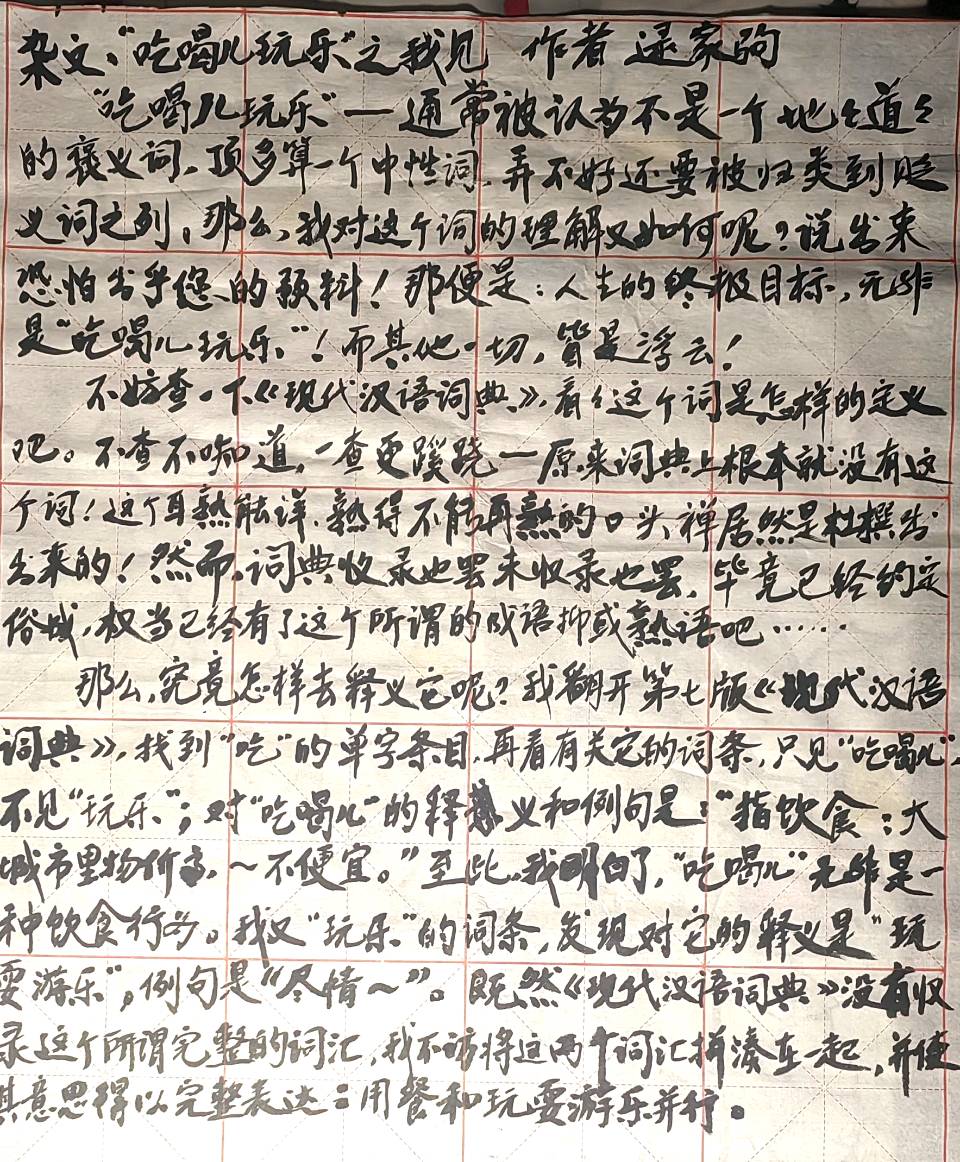 杂文、“吃喝儿玩乐”之我见 作者 逯家驹
“吃喝儿玩乐”—通常被认为不是一个地々道々
的褒义词，顶多算一个中性词，弄不好还要被归类到贬
义词之列。那么，我对这个词的理解又如何呢？说出来
恐怕出乎您的预料！那便是：人生的终极目标，无非
是“吃喝儿玩乐”！而其他一切，皆是浮云！
不妨查一下《现代汉语词典》，看々这个词是怎样的定义
吧。不查不知道，一查更蹊跷—原来词典上根本就没有这
个词！这个耳熟能详、熟得不能再熟的口头禅居然是杜撰出
出来的！然而，词典收录也罢未收录也罢，毕竟已经约定
俗成，权当已经有了这个所谓的成语抑或熟语吧……
那么，究竟怎样去释义它呢？我翻开第七版《现代汉语
词典》，找到“吃”的单字条目，再看有关它的词条，只见“吃喝儿”，
不见“玩乐”；对“吃喝儿”的释义和例句是：“指饮食：大
城市里物价高，～不便宜。”至此，我明白了，“吃喝儿”无非是一
种饮食行为。我又“玩乐”的词条，发现对它的释义是“玩
耍游乐”，例句是“尽情～”。既然《现代汉语词典》没有收
录这个所谓完整的词汇，我不访将这两个词汇拼凑在一起，并使
其意思得以完整表达：用餐和玩耍游乐并行。